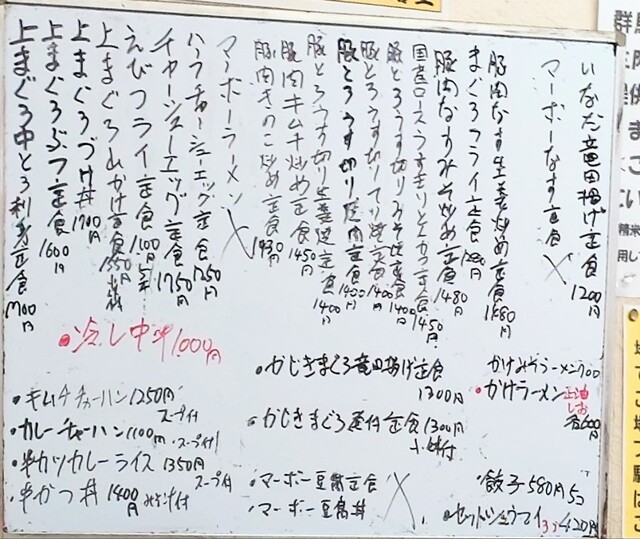 いなだ竜田揚げ定食 1200円
マーボーなす定食 ×
豚肉なす生姜炒め定食 1480円
まぐろフライ定食
豚肉なすみそ炒め定食 1480円
国産ロースうすぎりとんかつ定食 1450円
豚とろうす切りみそ焼定食 1400円
豚とろうす切りてり焼定食 1400円
豚とろうす切り焼肉定食 1400円
豚とろうす切り生姜焼定食 1400円
豚肉キムチ炒め定食 1450円
豚肉きのこ炒め定食 1430円
マーボーラーメン ×
ハーフチャーシューエッグ定食 1250円
チャーシューエッグ定食 1750円
えびフライ定食 1100円
上まぐろ山かけ定食 1550円
上まぐろづけ丼 1700円
上まぐろぶつ定食 1600円
上まぐろ中とろ刺身定食 1700円
●冷し中華 1000円
・キムチチャーハン 1250円 スープ付
・カレーチャーハン 1100円・スープ付
・半カツカレーライス 1350円 スープ付
・半かつ丼 1400円 みそ汁付
・かじきまぐろ竜田揚げ定食 1300円
・かじきまぐろ煮付定食 1300円 小鉢付
・マーボー豆腐定食 ×
・マーボー豆腐丼
かけみそラーメン 700
・かけラーメン 正油 しお 各600円
・餃子 580円 5コ
・セットシュウマイ 3コ 420円
精米